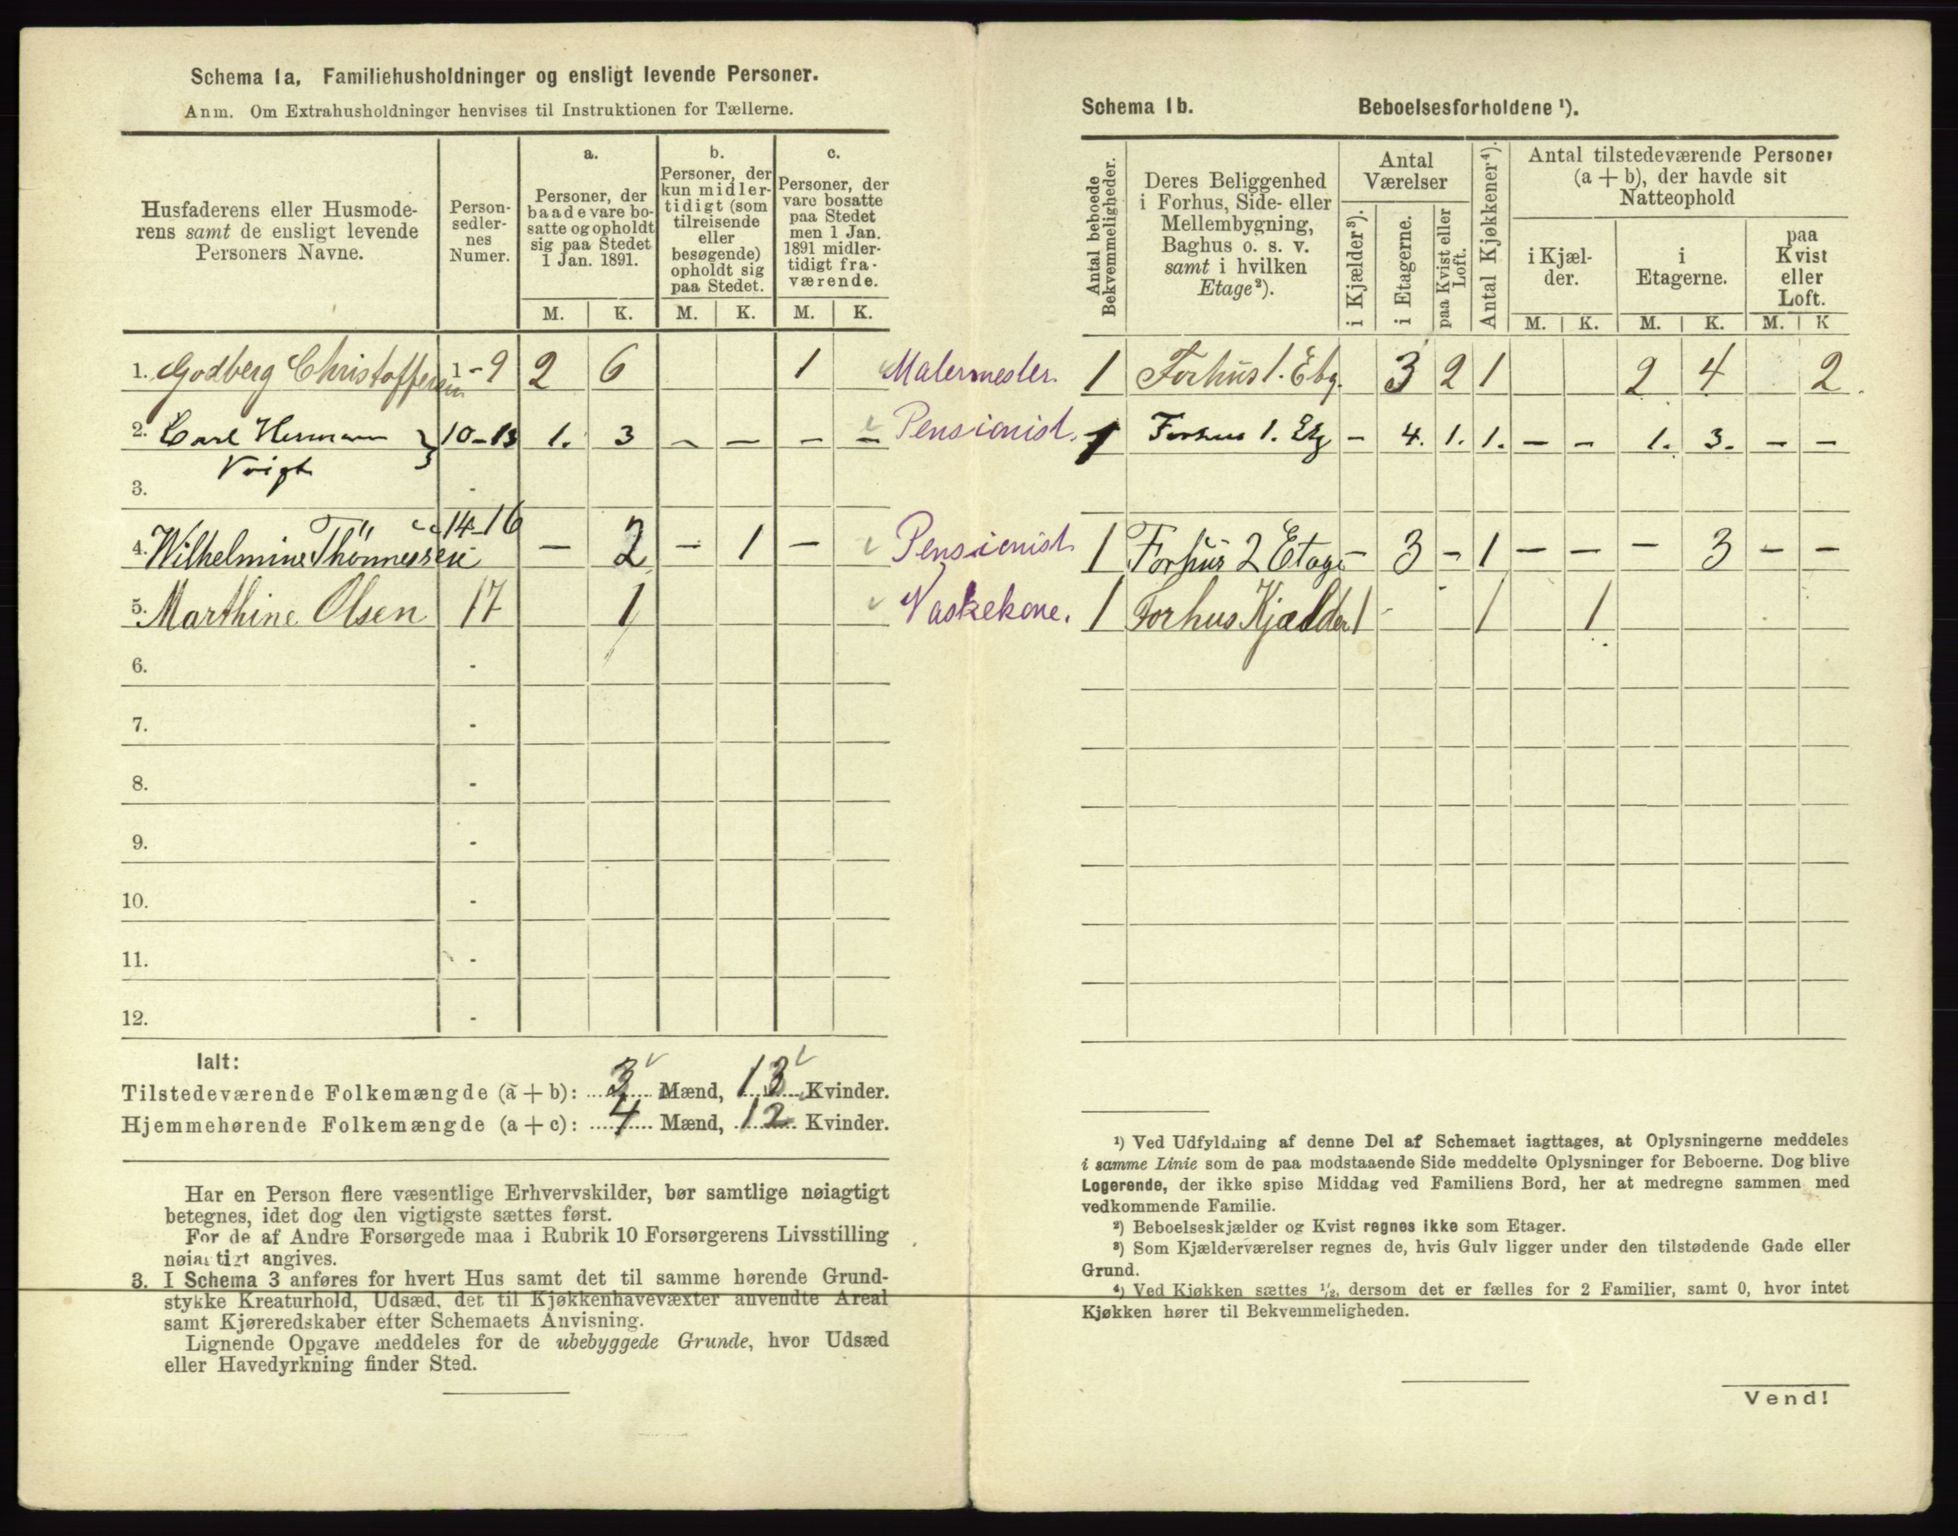 Schema 1a, Familiehusholdninger og ensligt levende Personer.
Anm. Om Extrahusholdninger henvises til Instruktionen for Tællerne.
Husfaderens eller Husmode-
rens samt de ensligt levende
Personers Navne.
Person-
sedler-
nes
Numer.
a.
Personer, der
baade vare bo-
satte og opholdt
sig paa Stedet
1 Jan. 1891.
b.
Personer, der
kun midler-
tidigt (som
tilreisende
eller
besøgende)
opholdt sig
paa Stedet.
c.
Personer, der
vare bosatte
paa Stedet
men 1 Jan.
1891 midler-
tidigt fra-
værende.
M. K. M. K. M. K.
1. Godberg Christoffersen 1-9 2 6 1 Malermester.
2. Carl Hermann } 10-13 1. 3 – – – – Pensionist.
Voigt
3. -
4. Wilhelmine Thönnessen 14-16 – 2 – 1 – Pensionist
5. Marthine Olsen 17 1 Vaskekone.
6. -
7. -
8. -
9. -
10. -
11. -
12. -
Ialt:
Tilstedeværende Folkemængde (a + b): 3 Mænd, 13 Kvinder.
Hjemmehørende Folkemængde (a + c): 4 Mænd, 12 Kvinder.
Har en Person flere væsentlige Erhvervskilder, bør samtlige nøiagtigt
betegnes, idet dog den vigtigste sættes først.
For de af Andre Forsørgede maa i Rubrik 10 Forsørgerens Livsstilling
nøiagtigt angives.
3. I Schema 3 anføres for hvert Hus samt det til samme hørende Grund-
stykke Kreaturhold, Udsæd, det til Kjøkkenhavevæxter anvendte Areal
samt Kjøreredskaber efter Schemaets Anvisning.
Lignende Opgave meddeles for de ubebyggede Grunde, hvor Udsæd
eller Havedyrkning finder Sted.
Schema 1b. Beboelsesforholdene ¹).
Antal beboede
Bekvemmeligheder.
Deres Beliggenhed
i Forhus, Side- eller
Mellembygning,
Baghus o. s. v.
samt i hvilken
Etage²).
Antal
Værelser
i Kjælder³).
i Etagerne.
paa Kvist eller
Loft.
Antal Kjøkkener⁴).
Antal tilstedeværende Personer
(a + b), der havde sit
Natteophold
i Kjæl-
der.
i
Etagerne.
paa
Kvist
eller
Loft.
M. K. M. K. M. K
1 Forhus 1. Etg. 3 2 1 2 4 2
1 Forhus 1. Etg – 4. 1. 1. – – 1. 3. – –
1 Forhus 2 Etage – 3 – 1 – – – 3 – –
1 Forhus Kjælder 1 - 1 1
¹) Ved Udfyldning af denne Del af Schemaet iagttages, at Oplysningerne meddeles
i samme Linie som de paa modstaaende Side meddelte Oplysninger for Beboerne. Dog blive
Logerende, der ikke spise Middag ved Familiens Bord, her at medregne sammen med
vedkommende Familie.
²) Beboelseskjælder og Kvist regnes ikke som Etager.
³) Som Kjælderværelser regnes de, hvis Gulv ligger under den tilstødende Gade eller
Grund.
⁴) Ved Kjøkken sættes ½, dersom det er fælles for 2 Familier, samt 0, hvor intet
Kjøkken hører til Bekvemmeligheden.
Vend!